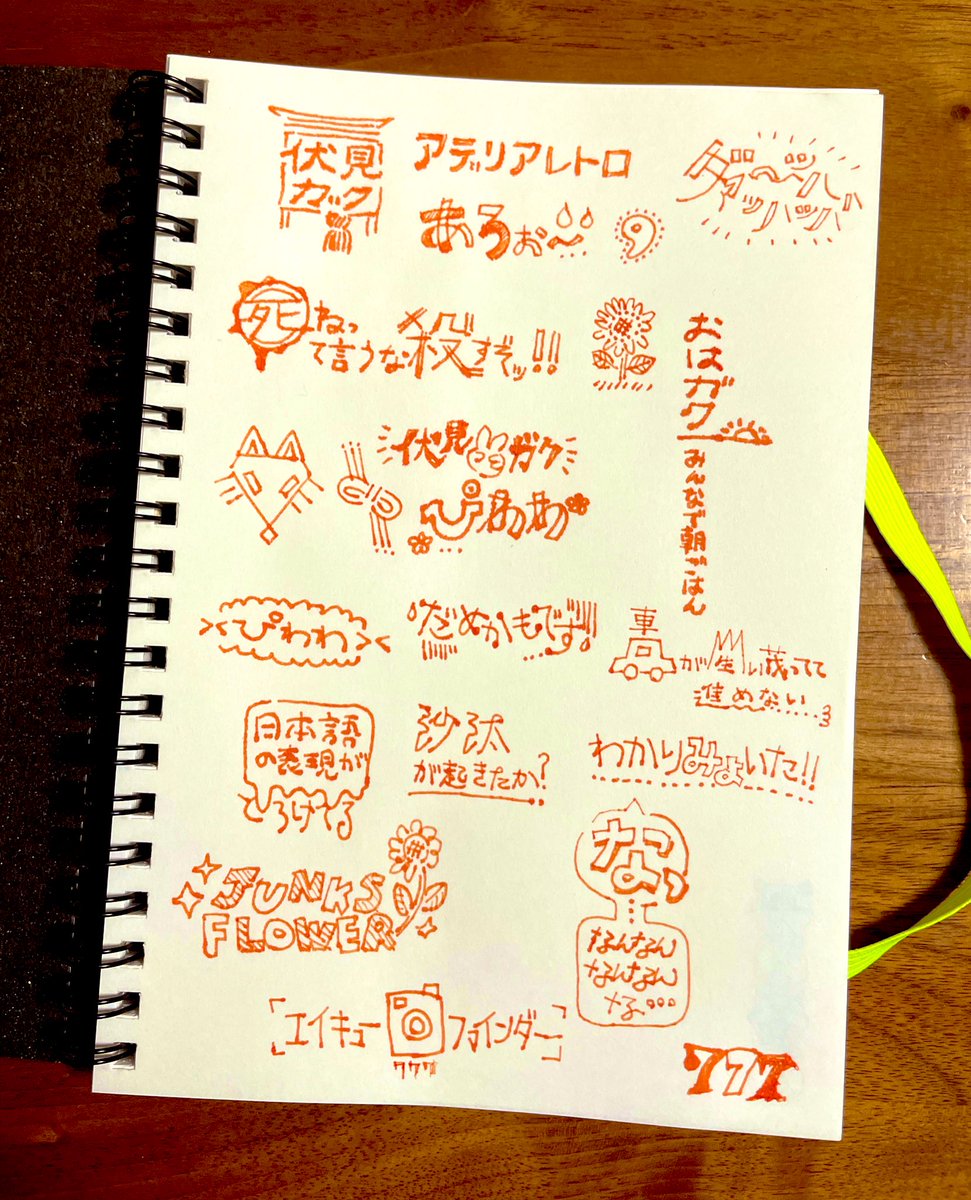 伏見
ガック
アデリアレトロ
あろぉ〜
9
死ねっ
て言うな殺すぞッ!!
おはガク
みんなで朝ごはん
伏見ガク
ぴわわ
><ぴわわ><
だめかもです!!
車
が生い茂ってて
進めない
日本語
の表現が
とろけてる
沙汰
が起きたか?
わかりみょいた!!
なょっ
なんなん
なんなん
な…
JUNKS
FLOWER
エイキュー
ファインダー
777